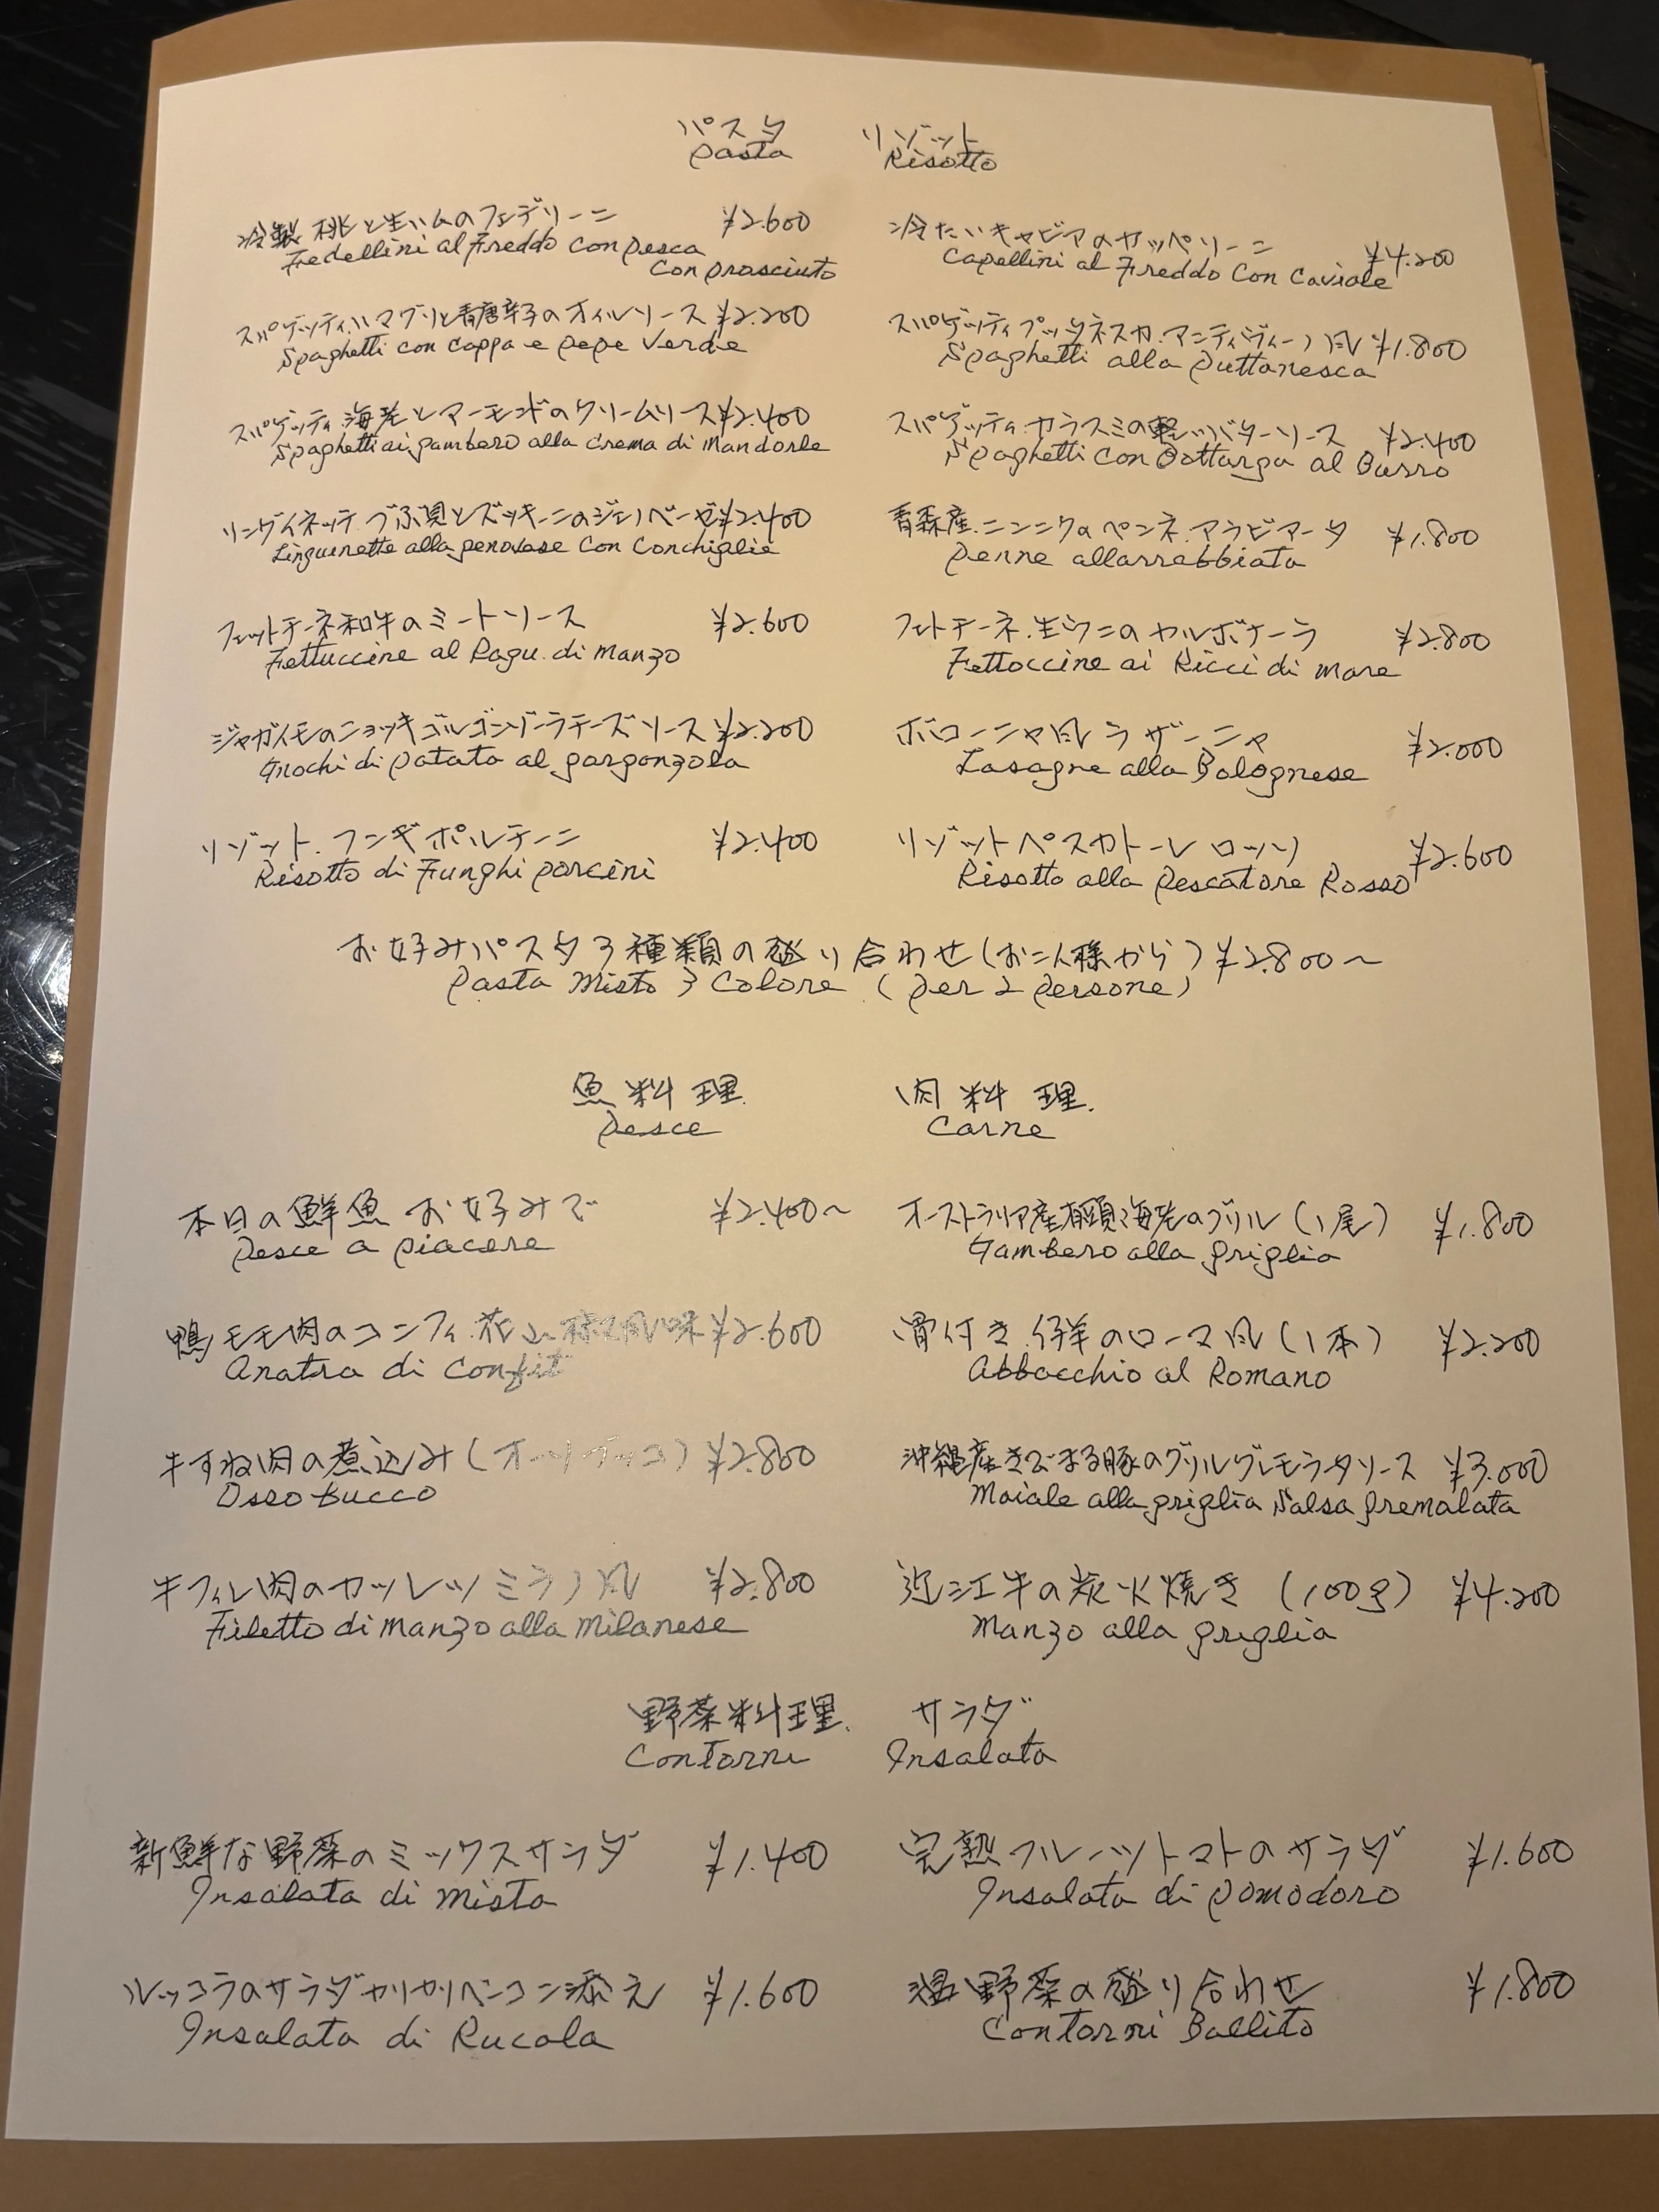 パスタ リゾット
Pasta Risotto
冷製 桃と生ハムのフェデリーニ ¥2.600
Fedellini al Freddo con pesca
con prosciuto
スパゲッティ.ハマグリと青唐辛子のオイルソース ¥2.200
Spaghetti con cappa e pepe verde
スパゲッティ.海老とアーモンドのクリームソース ¥2.400
Spaghetti ai gambero alla crema di Mandorle
リングイネッテ.つぶ貝とズッキーニのジェノベーゼ ¥2.400
Linguenette alla genovese con Conchiglie
フェットチーネ和牛のミートソース ¥2.600
Fettuccine al Ragu. di manzo
ジャガイモのニョッキゴルゴンゾーラチーズソース ¥2.200
Gnochi di patata al gorgonzola
リゾット.フンギポルチーニ ¥2.400
Risotto di Funghi porcini
冷たいキャビアのカッペリーニ ¥4.200
Capellini al Freddo Con Caviale
スパゲッティプッタネスカ.アンティヴィーノ風 ¥1.800
Spaghetti alla puttanesca
スパゲッティ.カラスミの軽いバターソース ¥2.400
Spaghetti con Bottarga al Burro
青森産.ニンニクのペンネ.アラビアータ ¥1.800
Penne allarrabbiata
フェトチーネ.生ウニのカルボナーラ ¥2.800
Fettoccine ai Ricci di mare
ボローニャ風ラザーニャ ¥2.000
Lasagne alla Bolognese
リゾットペスカトーレ ロッソ ¥2.600
Risotto alla Pescatore Rosso
お好みパスタ3種類の盛り合わせ(お二人様から) ¥2.800~
Pasta Misto 3 Colore (per 2 persone)
魚料理. 肉料理.
Pesce Carne
本日の鮮魚 お好みで ¥2.400~
Pesce a piacere
鴨モモ肉のコンフィ.花山椒風味 ¥2.600
Anatra di Confit
牛すね肉の煮込み(オーソブッコ) ¥2.800
Osso bucco
牛フィレ肉のカツレツミラノ風 ¥2.800
Filetto di manzo alla milanese
オーストラリア産有頭海老のグリル(1尾) ¥1.800
Gambero alla griglia
骨付き.仔羊のローマ風(1本) ¥2.200
Abbacchio al Romano
沖縄産きびまる豚のグリルグレモラータソース ¥3.000
Maiale alla griglia Salsa gremolata
近江牛の炭火焼き (100g) ¥4.200
Manzo alla griglia
野菜料理. サラダ
Contorni Insalata
新鮮な野菜のミックスサラダ ¥1.400
Insalata di mista
ルッコラのサラダカリカリベーコン添え ¥1.600
Insalata di Rucola
完熟フルーツトマトのサラダ ¥1.600
Insalata di pomodoro
温野菜の盛り合わせ ¥1.800
Contorni Bollito